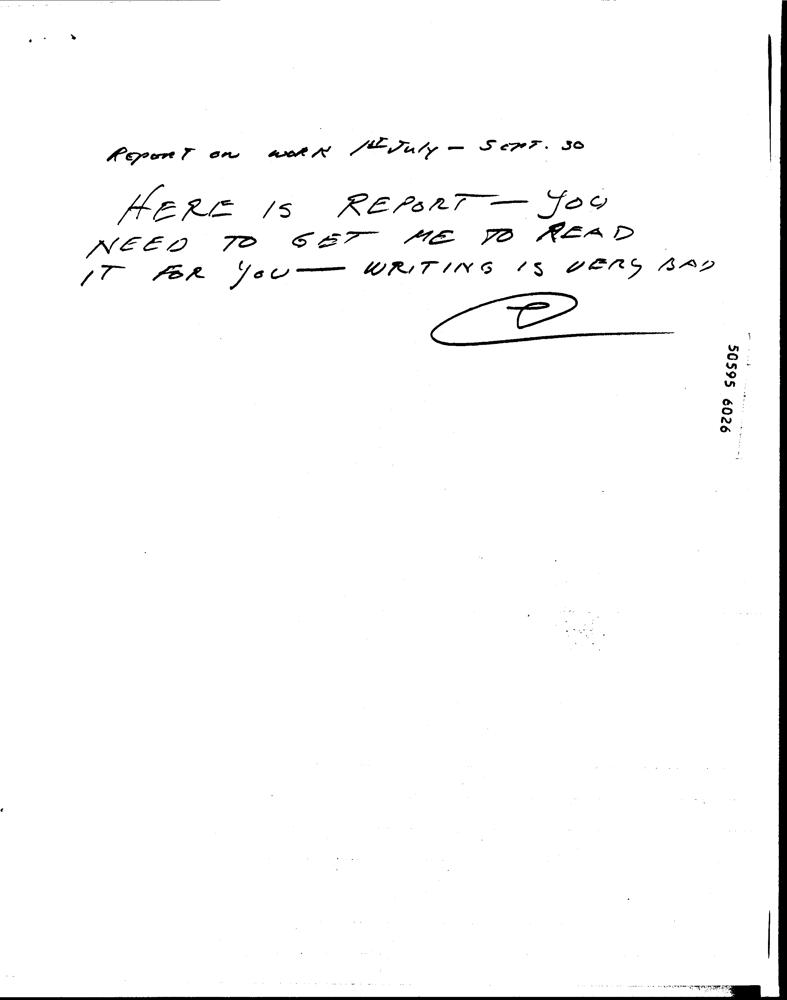 Report on work 1st July - Sept. 30
HERE IS REPORT — YOU
NEED TO GET ME TO READ
IT FOR YOU — WRITING IS VERY BAD
50595 6026